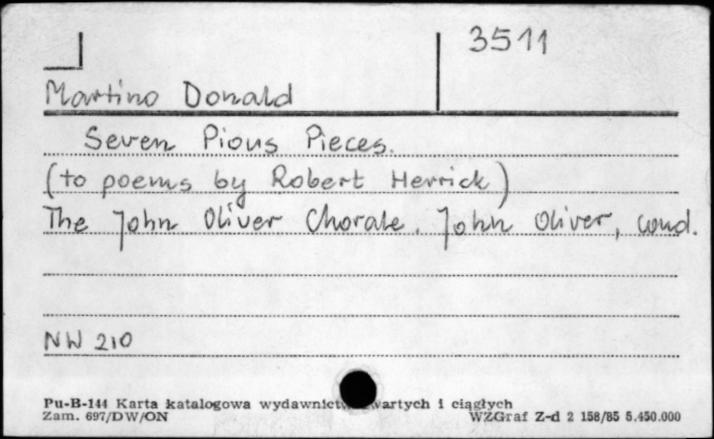 3511
Martino Donald
Seven Pious Pieces.
(to poems by Robert Herrick)
The John Oliver Chorale. John Oliver, cond.
NW 210
Pu-B-144 Karta katalogowa wydawnictw zwartych i ciągłych
Zam. 697/DW/ON WZGraf Z-d 2 158/85 5.450.000